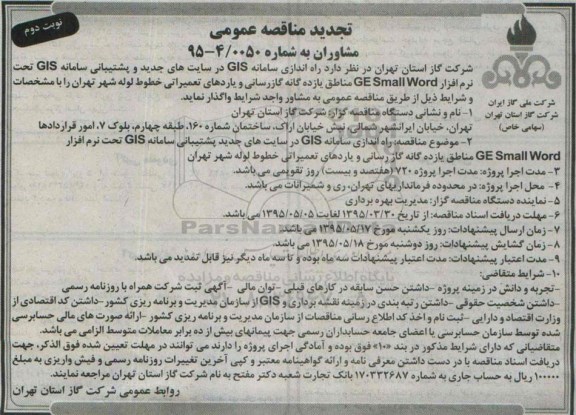 نوبت دوم
تجدید مناقصه عمومی
مشاوران به شماره ۹۵-۴/۰۰۵۰
شرکت ملی گاز ایران
شرکت گاز استان تهران
(سهامی خاص)
شرکت گاز استان تهران در نظر دارد راه اندازی سامانه GIS در سایت های جدید و پشتیبانی سامانه GIS تحت
نرم افزار GE Small Word مناطق یازده گانه گازرسانی و یاردهای تعمیراتی خطوط لوله شهر تهران را با مشخصات
و شرایط ذیل از طریق مناقصه عمومی به مشاور واجد شرایط واگذار نماید.
۱- نام و نشانی دستگاه مناقصه گزار: شرکت گاز استان تهران
تهران، خیابان ایرانشهر شمالی، نبش خیابان اراک، ساختمان شماره ۱۶۰، طبقه چهارم، بلوک ۷، امور قراردادها
۲- موضوع مناقصه: راه اندازی سامانه GIS در سایت های جدید پشتیبانی سامانه GIS تحت نرم افزار
GE Small Word مناطق یازده گانه گاز رسانی و یاردهای تعمیراتی خطوط لوله شهر تهران
۳- مدت اجرا پروژه: مدت اجرا پروژه ۷۲۰ (هفتصد و بیست) روز تقویمی می باشد.
۴- محل اجرا پروژه: در محدوده فرمانداریهای تهران، ری و شمیرانات می باشد.
۵- نماینده دستگاه مناقصه گزار: مدیریت بهره برداری
۶- مهلت دریافت اسناد مناقصه: از تاریخ ۱۳۹۵/۰۳/۳۰ لغایت ۱۳۹۵/۰۵/۰۵ می باشد.
۷- زمان ارسال پیشنهادات: روز یکشنبه مورخ ۱۳۹۵/۰۵/۱۷ می باشد.
۸- زمان گشایش پیشنهادات: روز دوشنبه مورخ ۱۳۹۵/۰۵/۱۸ می باشد.
۹- مدت اعتبار پیشنهادات: مدت اعتبار پیشنهادات سه ماه بوده و تا سه ماه دیگر نیز قابل تمدید می باشد.
۱۰- شرایط متقاضی:
-تجربه و دانش در زمینه پروژه -داشتن حسن سابقه در کارهای قبلی -توان مالی -آگهی ثبت شرکت همراه با روزنامه رسمی
-داشتن شخصیت حقوقی -داشتن رتبه بندی در زمینه نقشه برداری و GIS از سازمان مدیریت و برنامه ریزی کشور -داشتن کد اقتصادی از
وزارت اقتصاد و دارایی -ثبت نام و اخذ کد اطلاع رسانی مناقصات از سازمان مدیریت و برنامه ریزی کشور -ارائه صورت های مالی حسابرسی
شده توسط سازمان حسابرسی یا اعضای جامعه حسابداران رسمی جهت پیمانهای بیش از ده برابر معاملات متوسط الزامی می باشد.
متقاضیانی که دارای شرایط مذکور در بند «۱۰» فوق بوده و آمادگی اجرای پروژه را دارند می توانند در مهلت تعیین شده فوق الذکر، جهت
دریافت اسناد مناقصه با در دست داشتن معرفی نامه و ارائه گواهینامه معتبر و کپی آخرین تغییرات روزنامه رسمی و فیش واریزی به مبلغ
۱۰۰۰۰۰ ریال به حساب جاری به شماره ۱۷۰۳۳۲۶۸۷ بانک تجارت شعبه دکتر مفتح به نام شرکت گاز استان تهران مراجعه نمایند.
روابط عمومی شرکت گاز استان تهران